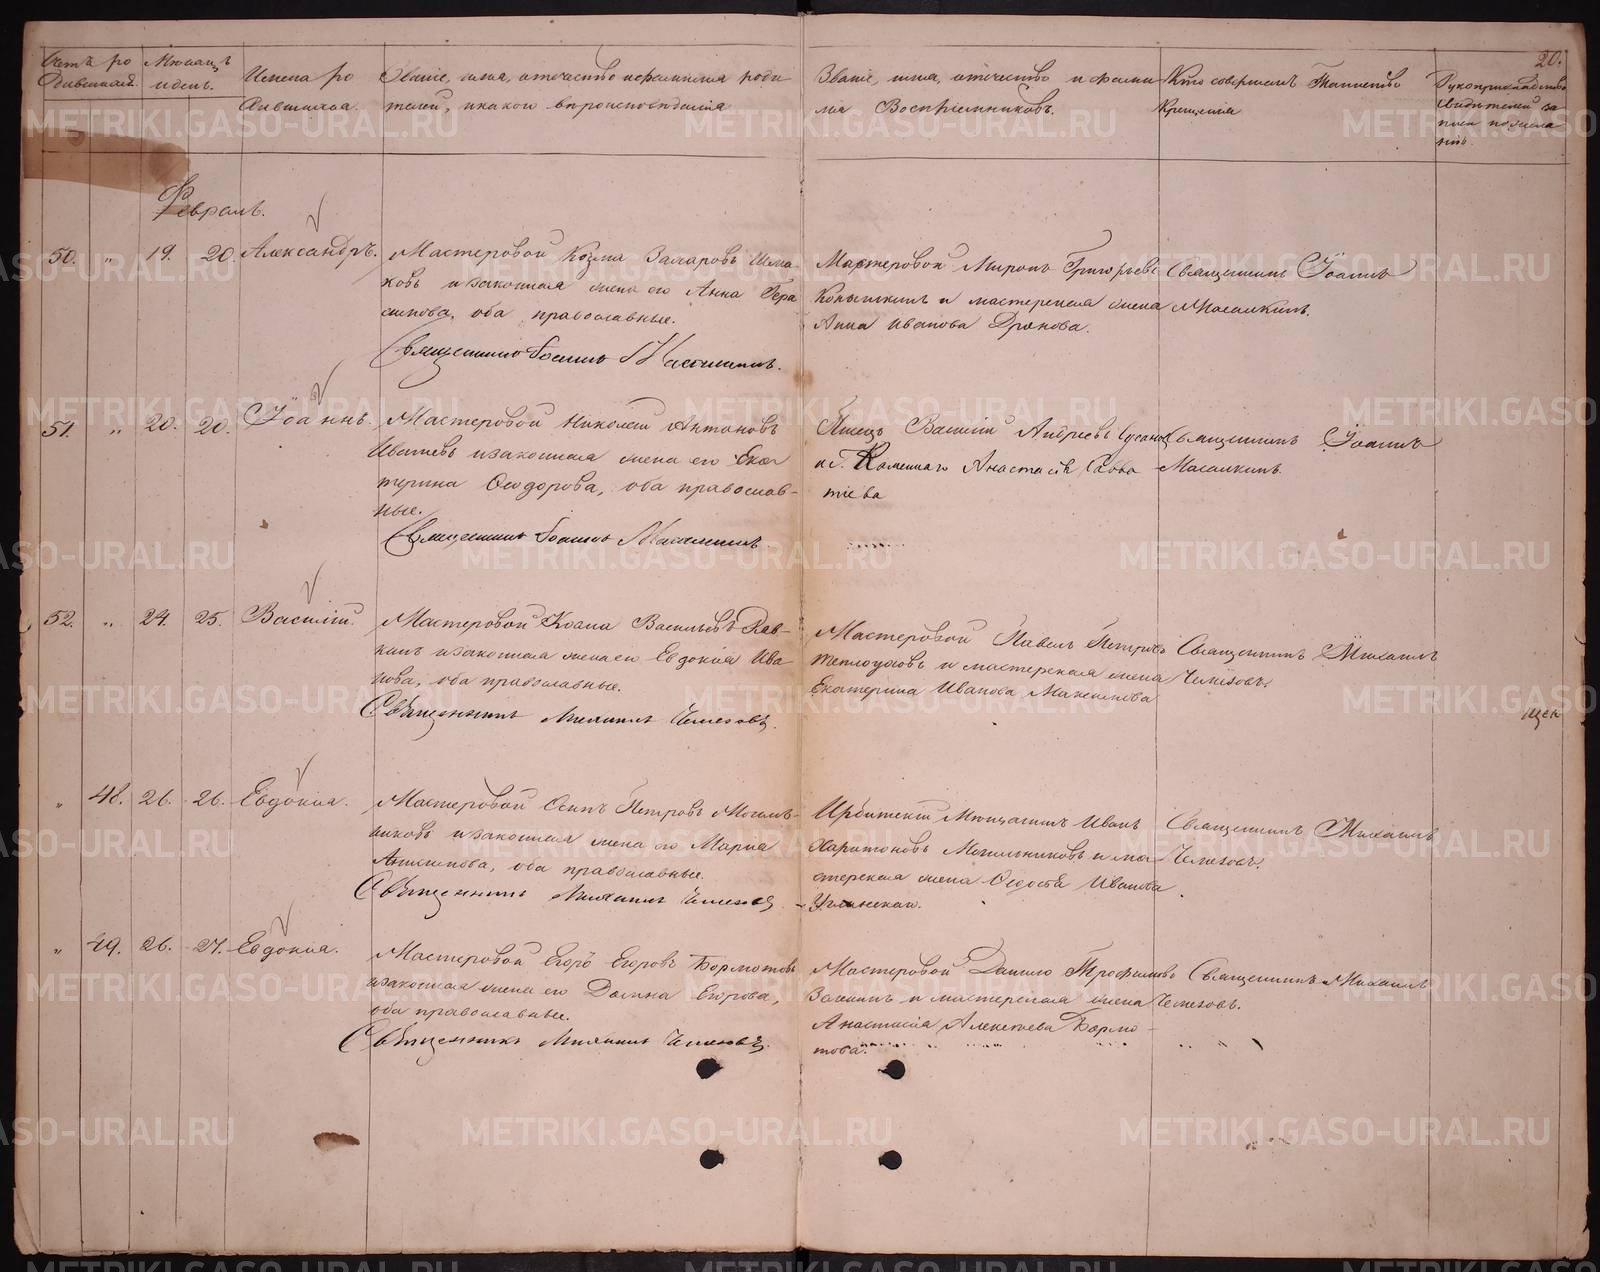 20.
Счетъ ро
дившихся.
Мѣсяцъ
и день.
Имена ро
дившихся.
Званіе, имя, отчество и фамилія роди
телей, и какого вѣроисповѣданія
Званіе, имя, отчество и фами
лія Воспріемниковъ.
Кто совершалъ Таинство
Крещенія
Рукоприкладство
свидѣтелей за
писи по жела
нію.
Февраль.
50. „ 19. 20. Александръ.
Мастеровой Козма Захаровъ
ковъ и законная жена его Анна Гера
симова, оба православные.
Священникъ Іоаннъ
Мастеровой Миронъ Григорьевъ
и мастерская жена
Анна Иванова
Священникъ Іоаннъ
Масалкинъ.
51. „ 20. 20. Іоаннъ.
Мастеровой Николай Антоновъ
Ивачевъ и законная жена его Ека
терина Ѳеодорова, оба православ-
ные.
Священникъ Іоаннъ Масалкинъ.
Василій Андреевъ
Анастасія Савва
тіева
Священникъ Іоаннъ
Масалкинъ.
52. „ 24. 25. Василій.
Мастеровой Козма Васильевъ
кинъ и законная жена его Евдокія Ива
нова, оба православные.
Священникъ Михаилъ Чемезовъ.
Мастеровой Павелъ Петровъ
Теплоуховъ и мастерская жена
Екатерина Иванова Максимова
Священникъ Михаилъ
Чемезовъ.
„ 48. 26. 26. Евдокія.
Мастеровой Осипъ Петровъ Могиль-
никовъ и законная жена его Марія
Анисимова, оба православные.
Священникъ Михаилъ Чемезовъ
Ирбитскій Мѣщанинъ Иванъ
Харитоновъ Могильниковъ и ма-
стерская жена Ѳедосія Иванова
Священникъ Михаилъ
Чемезовъ.
„ 49. 26. 27. Евдокія.
Мастеровой Егоръ Егоровъ Бормотовъ
и законная жена его Домна Егорова,
оба православные.
Священникъ Михаилъ Чемезовъ.
Мастеровой Данило Трофимовъ
и мастерская жена
Анастасія Алексѣева Бормо-
това.
Священникъ Михаилъ
Чемезовъ.
METRIKI.GASO-URAL.RU